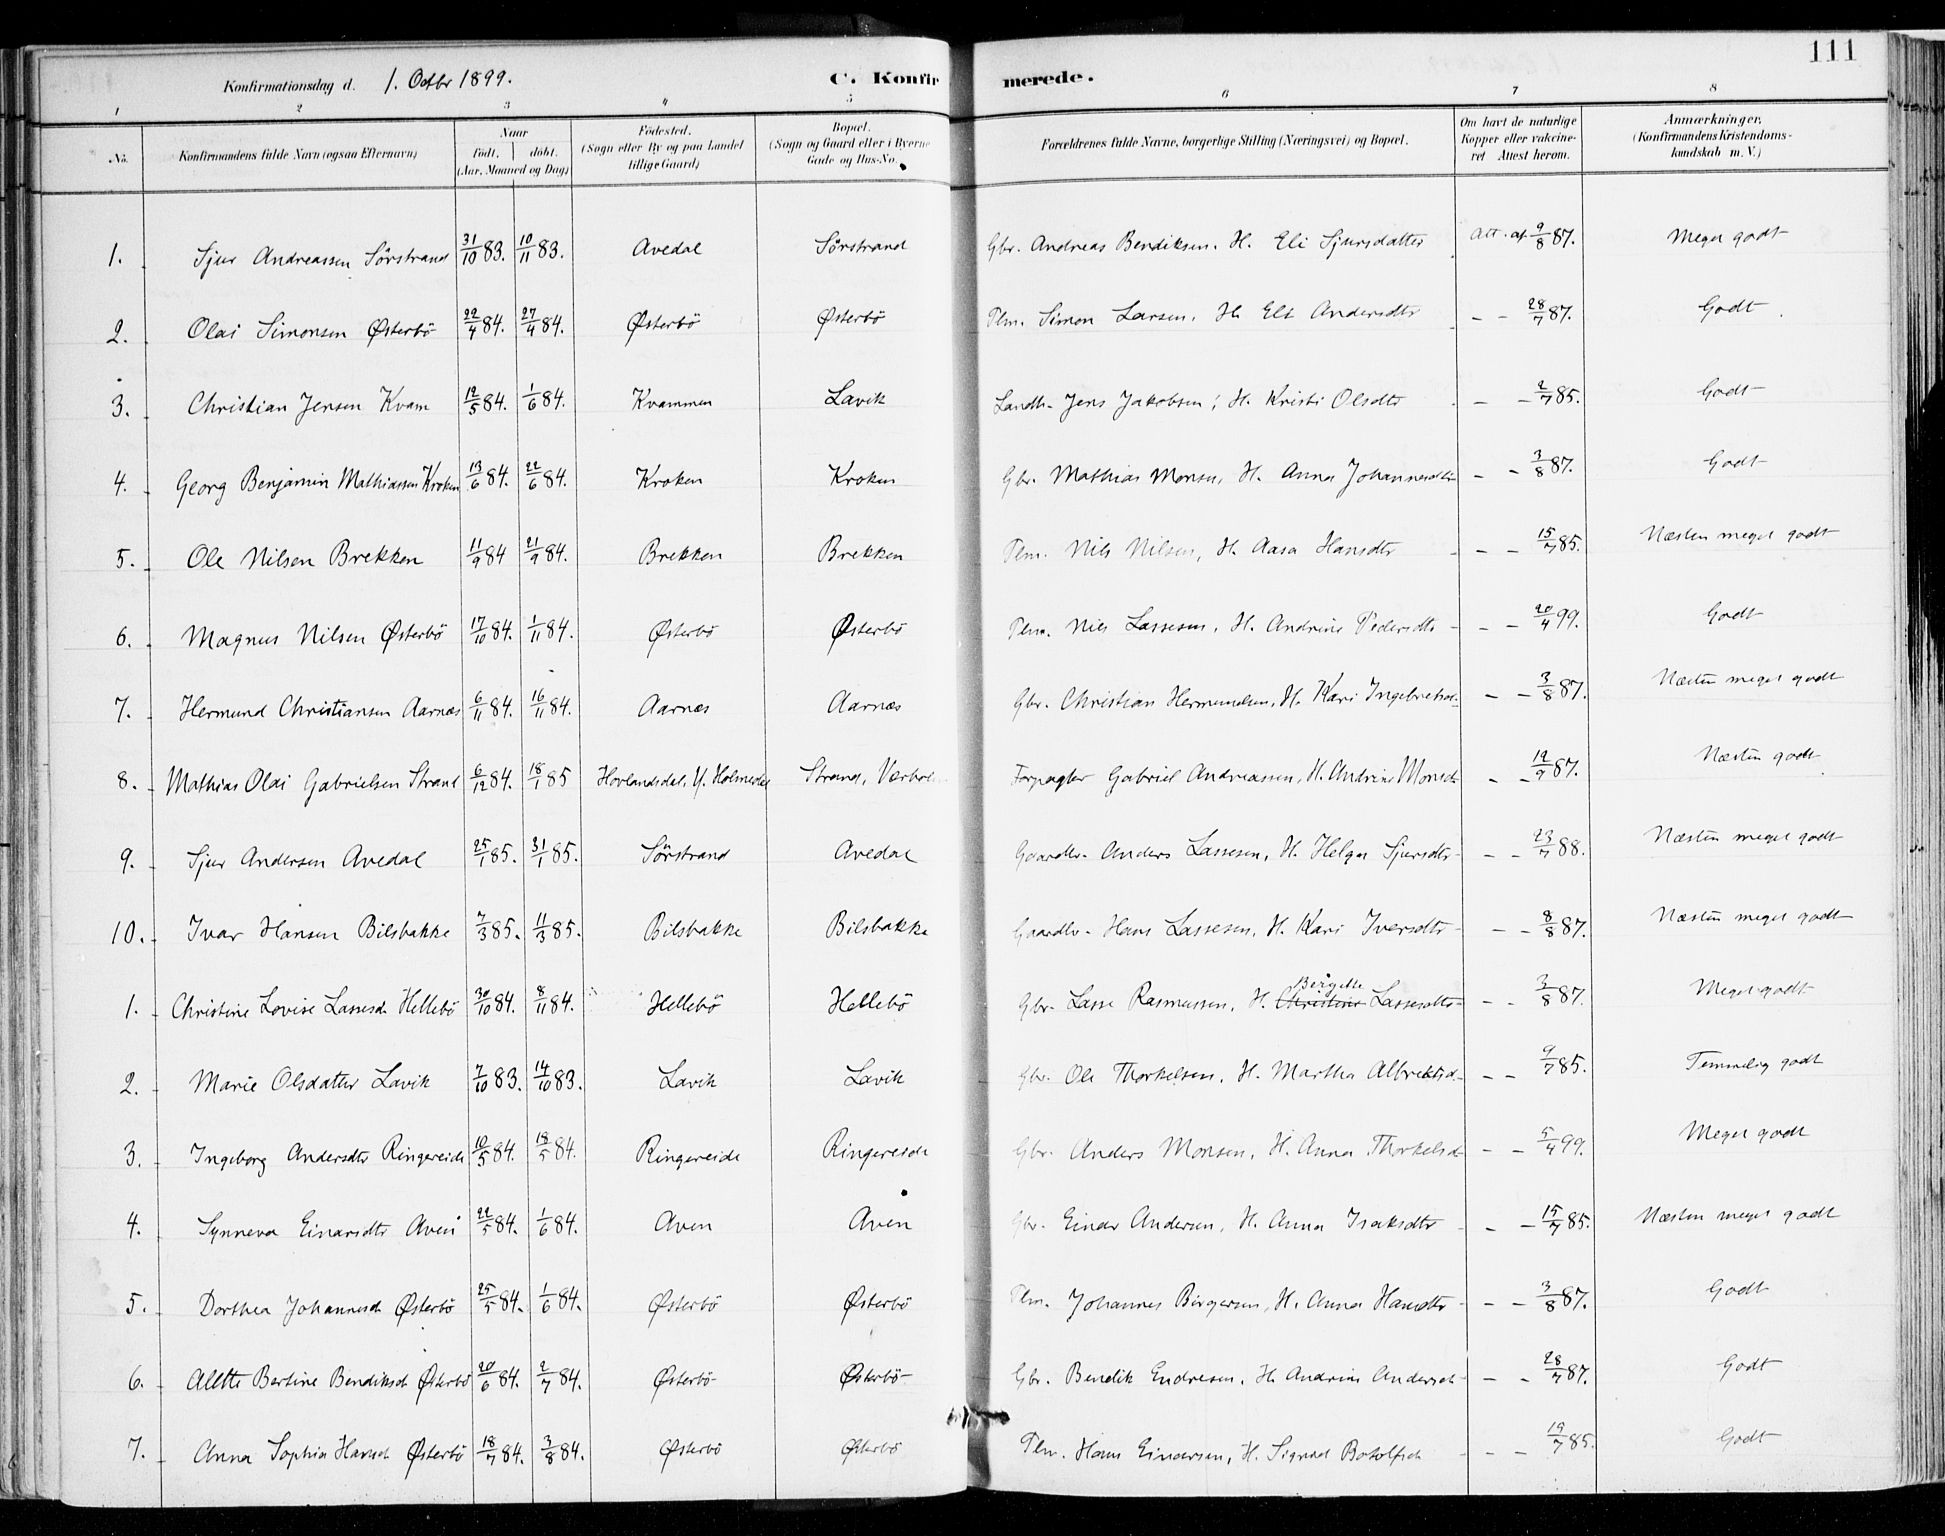 111
Konfirmationsdag d. 1. Octbr 1899. C. Konfirmerede.
1 2 3 4 5 6 7 8
No. Konfirmandens fulde Navn (ogsaa Efternavn) Naar født. døbt. (Aar, Maaned og Dag) Fødested. (Sogn eller By og paa Landet tillige Gaard) Bopæl. (Sogn og Gaard eller i Byerne Gade og Hus-No. Forældrenes fulde Navne, borgerlige Stilling (Næringsvei) og Bopæl. Om havt de naturlige Kopper eller vakcineret Attest herom. Anmærkninger, (Konfirmandens Kristendomskundskab m. V.)
1. Sjur Andreassen Sörstrand 31/10 83. 10/11 83. Avedal Sörstrand Gbr. Andreas Bendiksen. H. Eli Sjursdatter Att. af 9/8 87. Meget godt
2. Olai Simonsen Østerbö 22/4 84. 27/4 84. Østerbö Østerbö Plm. Simon Larsen, H. Eli Andersdtr - - 28/7 87. Godt
3. Christian Jensen Kvam 12/5 84. 1/6 84. Kvammen Lavik Landh. Jens Jakobsen, H. Kristi Olsdtr - - 2/7 85. Godt
4. Georg Benjamin Mathiassen Kroken 13/6 84. 22/6 84. Kroken Kroken Gbr. Mathias Monsen, H. Anna Johannesdtr - - 3/8 87. Godt
5. Ole Nilsen Brekken 11/9 84 21/9 84. Brekken Brekken Plm. Nils Nilsen, H. Aasa Hansdtr - - 15/7 85. Næsten meget godt
6. Magnus Nilsen Østerbö 17/10 84. 1/11 84. Østerbö Østerbö Plm. Nils Lassesen, H. Andrine Pedersdtr - - 20/4 99. Godt
7. Hermund Christiansen Aarnæs 6/11 84. 16/11 84. Aarnæs Aarnæs Gbr. Christian Hermundsen, H. Kari Ingebretsd. - - 3/8 87. Næsten meget godt
8. Mathias Olai Gabrielsen Strand 6/12 84. 18/1 85 Hovlandsdal, Y. Holmedal Strand, Gabriel Andreassen, H. Andrine Monsd - - 12/9 87. Næsten godt
9. Sjur Andersen Avedal 25/1 85. 31/1 85. Sörstrand Avedal Gaardbr. Anders Lassesen, H. Helga Sjursdtr - - 23/7 88. Næsten meget godt
10. Ivar Hansen Bilsbakke 7/3 85. 11/3 85. Bilsbakke Bilsbakke Gaardbr. Hans Lassesen, H. Kari Iversdtr - - 8/8 87. Næsten meget godt
1. Christine Lovise Lassesd. Hellebö 30/10 84. 8/11 84. Hellebö Hellebö Gbr. Lasse Rasmussen, H. Christine Birgitte Lassesdtr - - 3/8 87. Meget godt
2. Marie Olsdatter Lavik 7/10 83. 14/10 83. Lavik Lavik Gbr. Ole Thorkelsen, H. Martha Albrektsd. - - 9/7 85. Temmelig godt
3. Ingeborg Andersdtr Ringereide 10/5 84. 18/5 84. Ringereide Ringereide Gbr. Anders Monsen, H. Anna Thorkelsd - - 5/4 99. Meget godt
4. Synneva Einarsdtr Aven 22/5 84. 1/6 84. Aven Aven Gbr. Einar Andersen, H. Anna Isaksdtr - - 15/7 85. Næsten meget godt
5. Dorthea Johannesd. Østerbö 25/5 84. 1/6 84. Østerbö Østerbö Plm. Johannes Birgersen, H. Anna Hansdtr - - 3/8 87. Godt
6. Alette Bertine Bendiksd. Østerbö 20/6 84. 2/7 84. Østerbö Østerbö Gbr. Bendik Endresen, H. Andrine Andersd. - - 28/7 87. Godt
7. Anna Sophia Hansd. Østerbö 18/7 84. 3/8 84. Østerbö Østerbö Plm. Hans Einarsen, H. Sigrid Botolfsd. - - 19/7 85. Godt